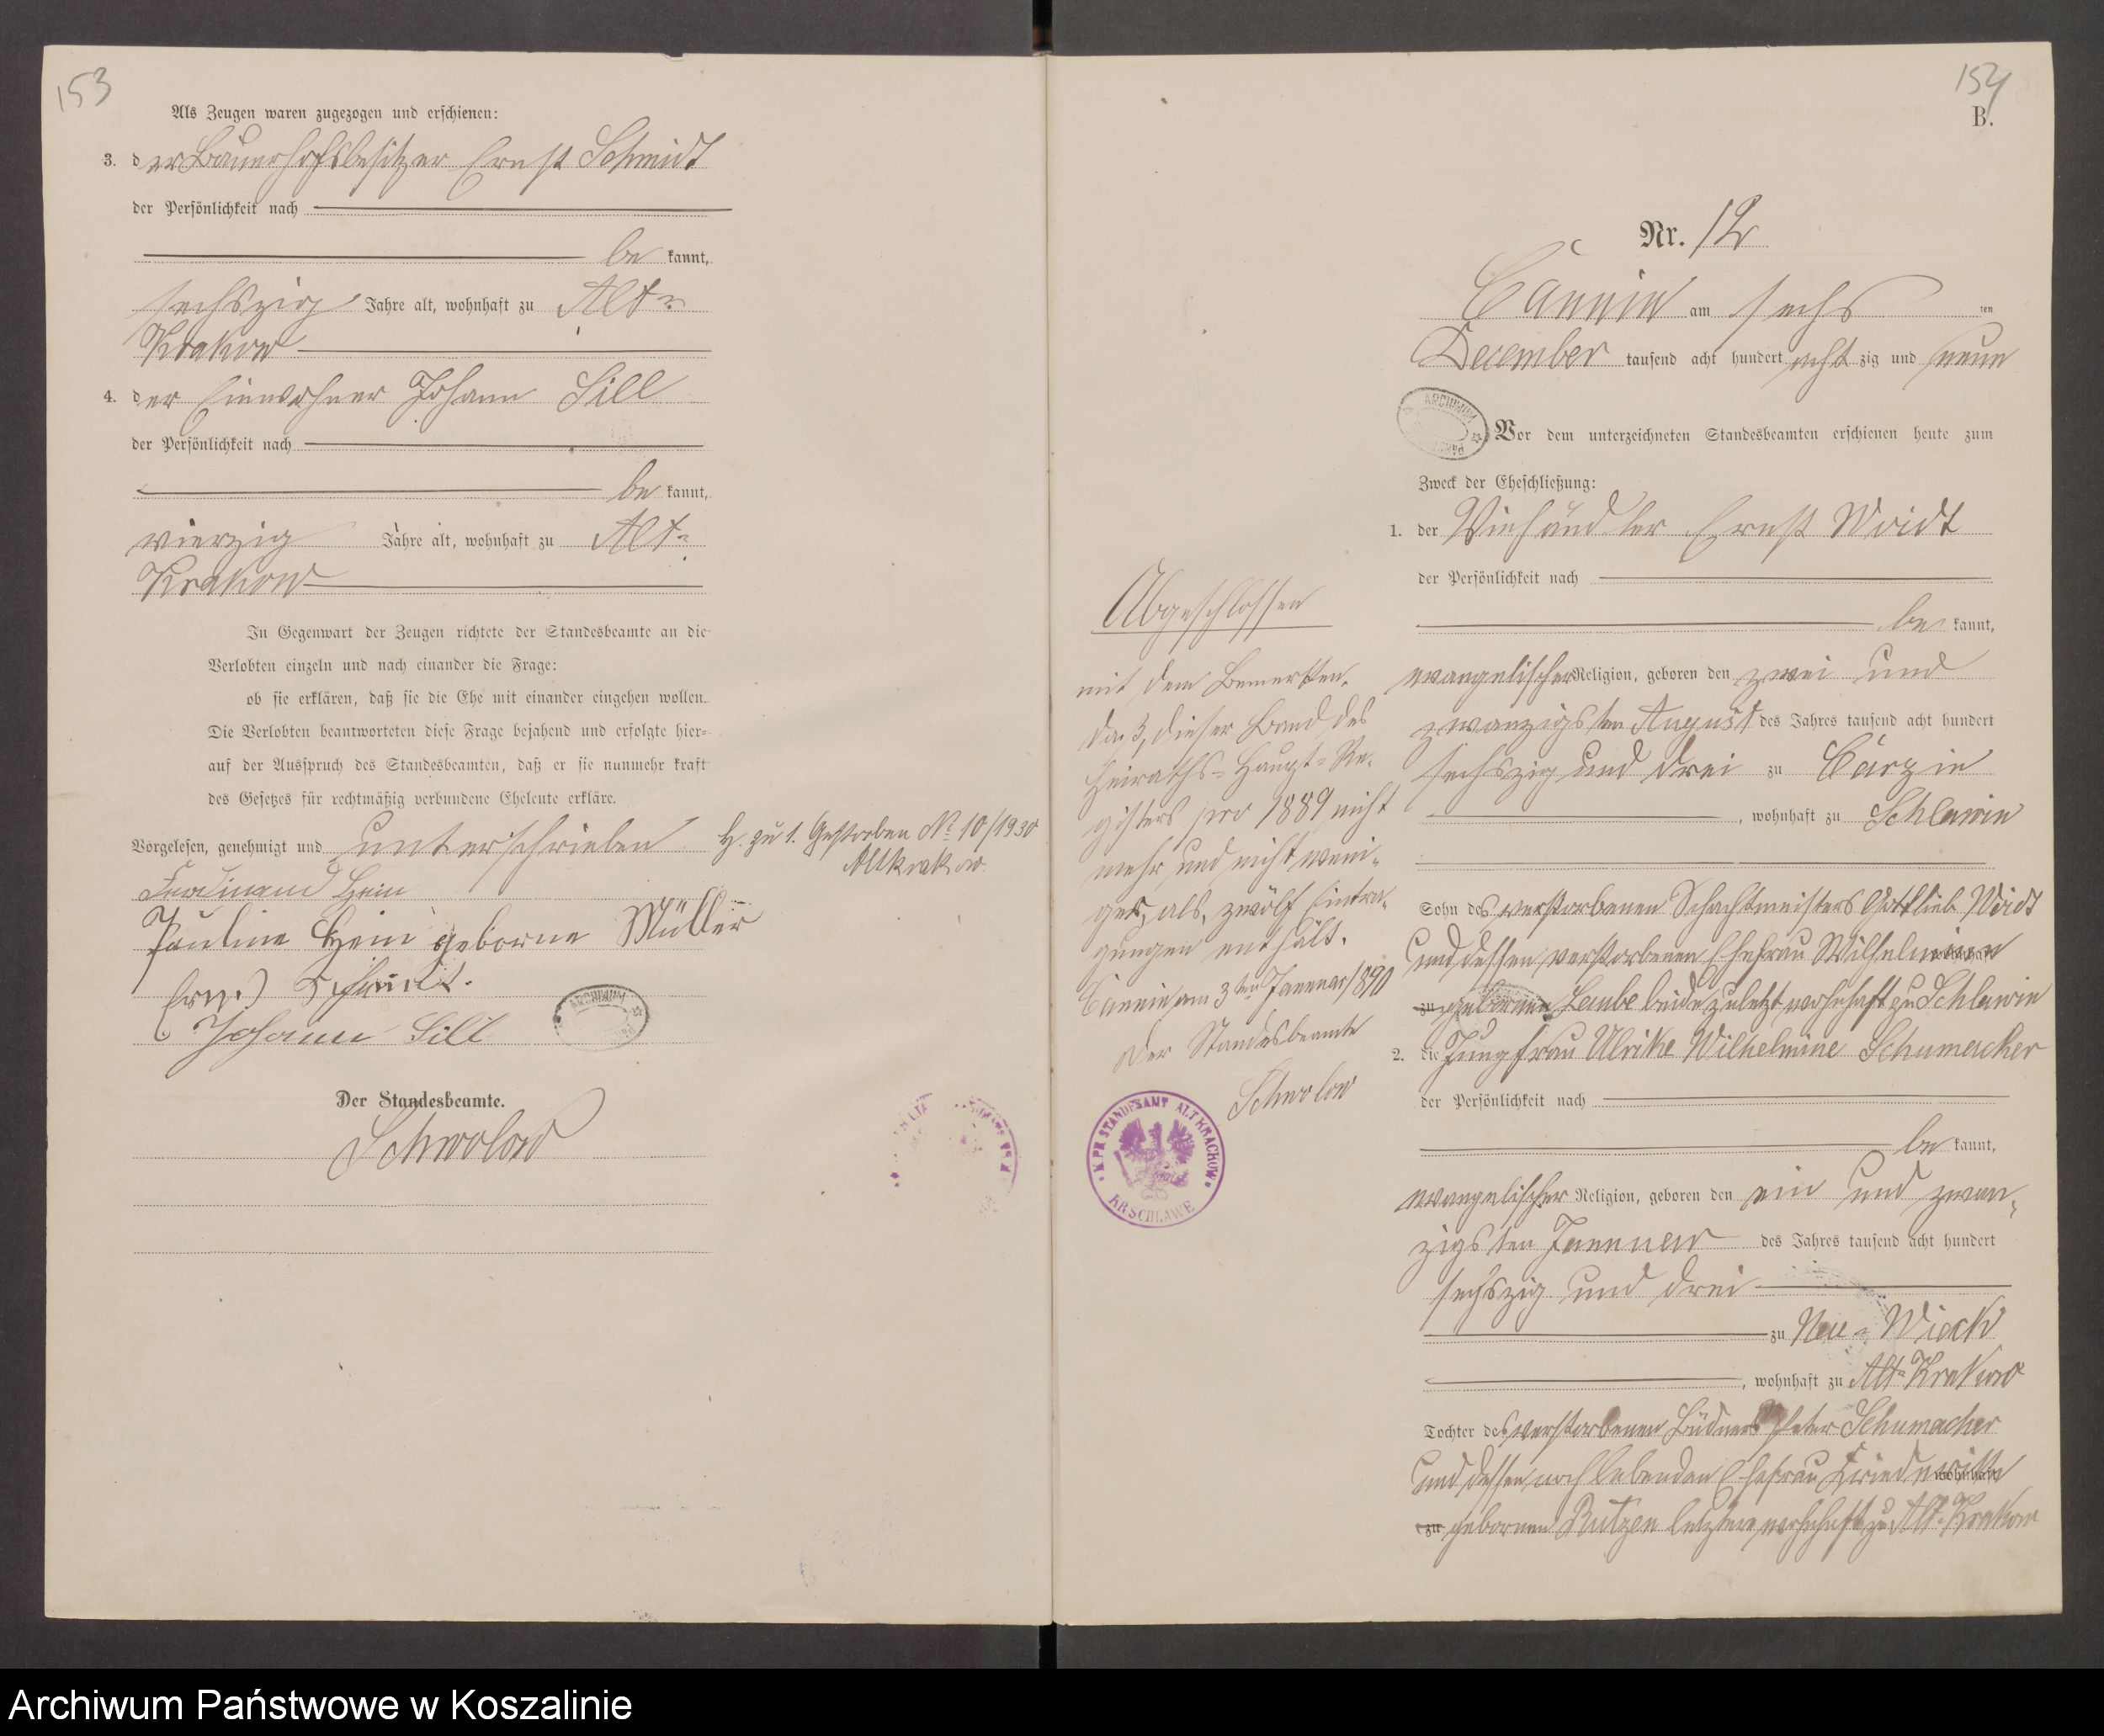 153
Als Zeugen waren zugezogen und erschienen:
3. der Bauerhofsbesitzer Ernst Schmidt
der Persönlichkeit nach
be kannt,
sechszig Jahre alt, wohnhaft zu Alt-
Krakow
4. der Einwohner Johann Sill
der Persönlichkeit nach
be kannt,
vierzig Jahre alt, wohnhaft zu Alt-
Krakow
In Gegenwart der Zeugen richtete der Standesbeamte an die
Verlobten einzeln und nach einander die Frage:
ob sie erklären, daß sie die Ehe mit einander eingehen wollen.
Die Verlobten beantworteten diese Frage bejahend und erfolgte hier-
auf der Ausspruch des Standesbeamten, daß er sie nunmehr kraft
des Gesetzes für rechtmäßig verbundene Eheleute erkläre.
Vorgelesen, genehmigt und unterschrieben
Ferdinand Hein
Pauline Hein geborne Müller
Schmidt.
Johann Sill
ARCHIWUM
Der Standesbeamte.
Schwolow
H. zu 1. Gestorben No 10/1930
Altkrakow.
154
B.
Nr. 12
Cannin am sechs ten
December tausend acht hundert acht zig und neun
ARCHIWUM
Vor dem unterzeichneten Standesbeamten erschienen heute zum
Zweck der Eheschließung:
1. der Viehändler Ernst Woidt
der Persönlichkeit nach
be kannt,
evangelischer Religion, geboren den zwei und
zwanzigsten August des Jahres tausend acht hundert
sechszig und drei zu Carzin
, wohnhaft zu Schlawin
Sohn des verstorbenen Schachtmeisters Gottlieb Woidt
und dessen verstorbenen Ehefrau Wilhelmine wohnhaft
zu gebornen Laube beide zuletzt wohnhaft zu Schlawin
2. die Jungfrau Ulrike Wilhelmine Schumacher
der Persönlichkeit nach
be kannt,
evangelischer Religion, geboren den ein und zwan-
zigsten Januar des Jahres tausend acht hundert
sechszig und drei
zu Neu-Wieck
, wohnhaft zu Alt-Krakow
Tochter des verstorbenen Büdners Peter Schumacher
und dessen noch lebenden Ehefrau Friederike wohnhaft
zu gebornen Rutzen letztere wohnhaft zu Alt-Krakow
Abgeschlossen
mit dem Bemerken,
daß, dieser Band des
Heiraths-Haupt-Re-
gisters pro 1889 nicht
mehr und nicht weni-
ger, als, zwölf Eintra-
gungen enthält.
Cannin am 3ten Januar 1890
Der Standesbeamte
Schwolow
K. PR. STANDESAMT ALT KRACHOW
KR SCHLAWE
Archiwum Państwowe w Koszalinie